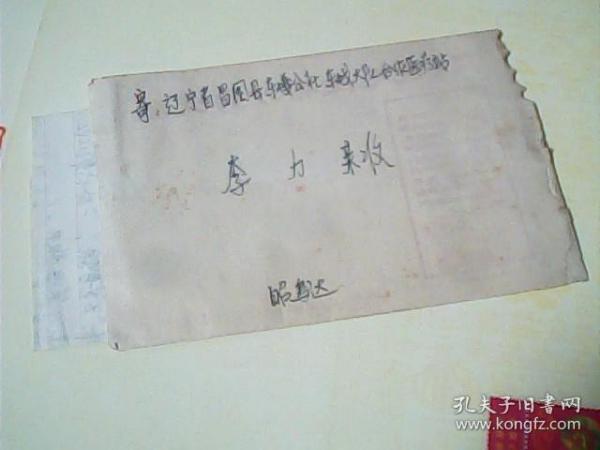 寄:辽宁省昌图县东嘎公社东嘎大队合作医疗站
李力 亲收
昭乌达
孔夫子旧书网
www.kongfz.com